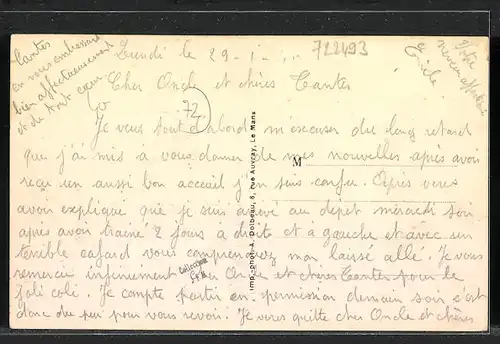 Lundi le 29-1-
722493
Cher Oncle et chères Tantes
72
Je veux tout d'abord m'excuser du long retard
que j'ai mis a vous donner de mes nouvelles après avoir
reçu un aussi bon acceuil j'en suis confus. Après vous
avoir expliqué que je suis arrivé au depot mercredi soir
après avoir trainé 2 jours a droite et a gauche et avec un
terrible cafard vous comprendrez mon laissé allé. Je vous
remercie infiniment cher Oncle et chères Tantes pour le
joli coli. Je compte partir en permission demain soir c'est
donc du peu pour vous revoir. Je vous quitte cher Oncle et chères
Tantes
en vous embrassant
bien affectueusement
et de tout cœur
Votre
neveu
M
Imp.-phot. A. Dolbeau, 8, rue Auvray, Le Mans
Collection